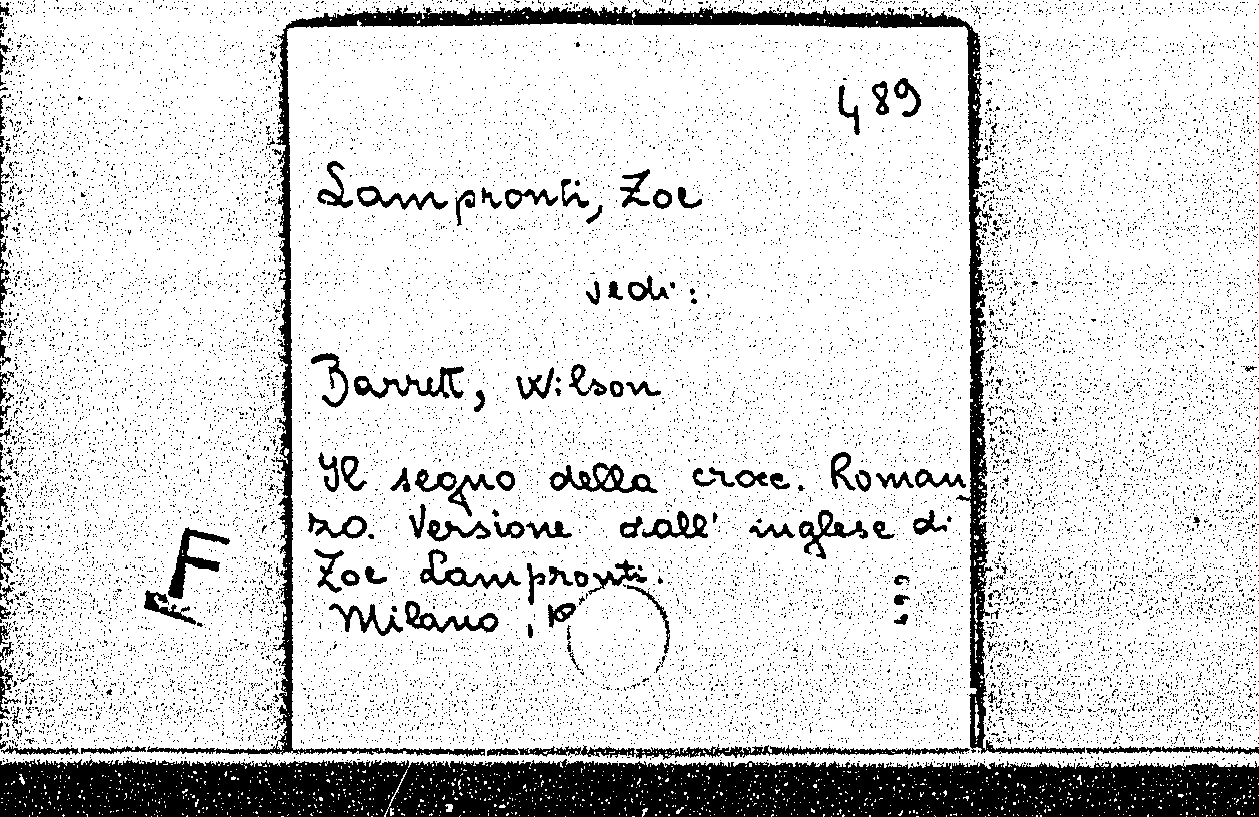 489
Lampronti, Zoe
vedi:
Barrett, Wilson
Il segno della croce. Roman-
zo. Versione dall' inglese di
Zoe Lampronti.
Milano,
F